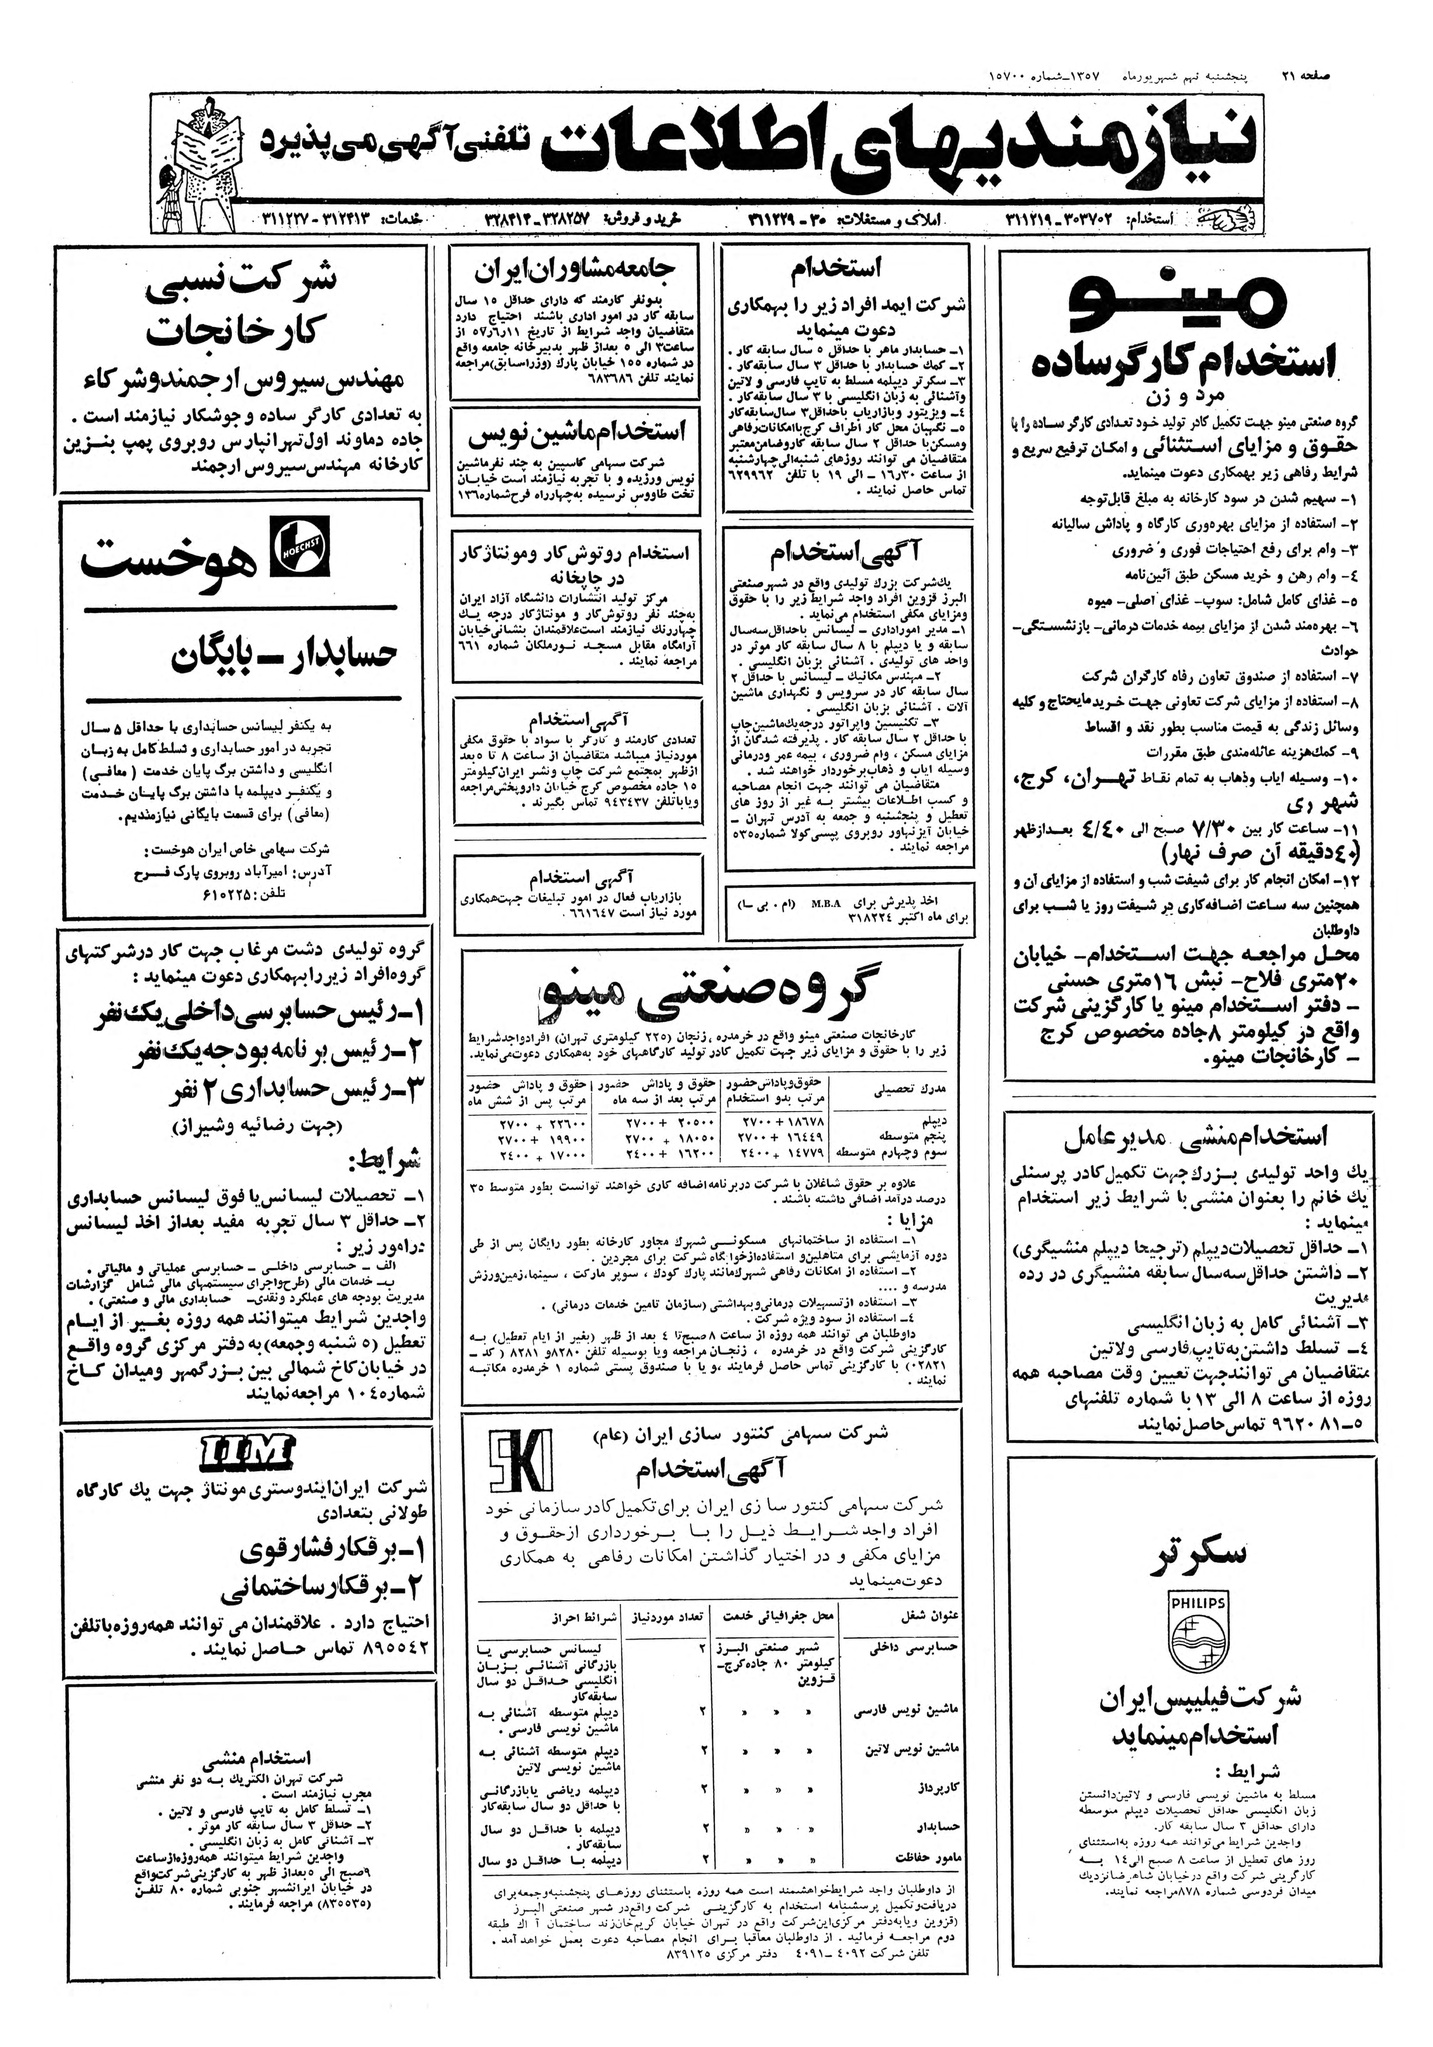 صفحه ۲۱
پنجشنبه نهم شهریورماه ۱۳۵۷ــ شماره ۱۵۷۰۰
نیازمندیهای اطلاعات تلفنی آگهی می‌پذیرد
استخدام: ۳۰۳۷۰۲ ــ ۳۱۱۲۱۹
املاک و مستغلات: ۳۰ - ۳۱۱۲۲۹
خرید و فروش: ۳۲۸۲۵۷ ــ ۳۲۸۴۱۴
خدمات: ۳۱۲۴۱۳ - ۳۱۱۲۲۷
مینو
استخدام کارگر ساده
مرد و زن
گروه صنعتی مینو جهت تکمیل کادر تولید خود تعدادی کارگر ساده را با
حقوق و مزایای استثنائی و امکان ترفیع سریع و
شرایط رفاهی زیر بهمکاری دعوت مینماید.
۱- سهیم شدن در سود کارخانه به مبلغ قابل‌توجه
۲- استفاده از مزایای بهره‌وری کارگاه و پاداش سالیانه
۳- وام برای رفع احتیاجات فوری و ضروری
۴- وام رهن و خرید مسکن طبق آئین‌نامه
۵- غذای کامل شامل: سوپ- غذای اصلی- میوه
۶- بهره‌مند شدن از مزایای بیمه خدمات درمانی- بازنشستگی-
حوادث
۷- استفاده از صندوق تعاون رفاه کارگران شرکت
۸- استفاده از مزایای شرکت تعاونی جهت خرید مایحتاج و کلیه
وسائل زندگی به قیمت مناسب بطور نقد و اقساط
۹- کمك هزینه عائله‌مندی طبق مقررات
۱۰- وسیله ایاب وذهاب به تمام نقاط تهران، کرج،
شهر ری
۱۱- ساعت کار بین ۷/۳۰ صبح الی ۴/۴۰ بعدازظهر
(۴۰ دقیقه آن صرف نهار)
۱۲- امکان انجام کار برای شیفت شب و استفاده از مزایای آن و
همچنین سه ساعت اضافه‌کاری در شیفت روز یا شب برای
داوطلبان
محل مراجعه جهت استخدام- خیابان
۲۰متری فلاح- نبش ۱۶متری حسنی
- دفتر استخدام مینو یا کارگزینی شرکت
واقع در کیلومتر ۸ جاده مخصوص کرج
- کارخانجات مینو.
استخدام منشی مدیرعامل
یك واحد تولیدی بزرك جهت تکمیل کادر پرسنلی
یك خانم را بعنوان منشی با شرایط زیر استخدام
مینماید :
۱- حداقل تحصیلات دیپلم (ترجیحا دیپلم منشیگری)
۲- داشتن حداقل سه سال سابقه منشیگری در رده
مدیریت
۳- آشنائی کامل به زبان انگلیسی
۴- تسلط داشتن به تایپ فارسی ولاتین
متقاضیان می توانند جهت تعیین وقت مصاحبه همه
روزه از ساعت ۸ الی ۱۳ با شماره تلفنهای
۵-۹۶۲۰۸۱ تماس حاصل نمایند
سکرتر
PHILIPS
شرکت فیلیپس ایران
استخدام مینماید
شرایط :
مسلط به ماشین نویسی فارسی و لاتین دانستن
زبان انگلیسی حداقل تحصیلات دیپلم متوسطه
دارای حداقل ۳ سال سابقه کار.
واجدین شرایط می‌توانند همه روزه به‌استثنای
روز های تعطیل از ساعت ۸ صبح الی ۱۴ به
کارگزینی شرکت واقع درخیابان شاهرضا نزدیك
میدان فردوسی شماره ۸۷۸ مراجعه نمایند.
استخدام
شرکت ایمد افراد زیر را بهمکاری
دعوت مینماید
۱- حسابدار ماهر با حداقل ۵ سال سابقه کار .
۲- کمك حسابدار با حداقل ۳ سال سابقه کار .
۳- سکرتر دیپلمه مسلط به تایپ فارسی و لاتین
وآشنائی به زبان انگلیسی با ۳ سال سابقه‌کار .
۴- ویزیتور و بازاریاب باحداقل ۳ سال سابقه کار
۵- نگهبان محل کار اطراف کرج با امکانات رفاهی
ومسکن با حداقل ۲ سال سابقه کار وضامن معتبر
متقاضیان می توانند روزهای شنبه الی چهارشنبه
از ساعت ۱۶٫۳۰ – الی ۱۹ با تلفن ۶۲۹۹۶۲
تماس حاصل نمایند .
آگهی استخدام
یك شرکت بزرك تولیدی واقع در شهر صنعتی
البرز قزوین افراد واجد شرایط زیر را با حقوق
ومزایای مکفی استخدام می‌نماید .
۱- مدیر اموراداری – لیسانس با حداقل سه سال
سابقه و یا دیپلم با ۸ سال سابقه کار موثر در
واحد های تولیدی . آشنائی بزبان انگلیسی .
۲- مهندس مکانیك – لیسانس با حداقل ۲
سال سابقه کار در سرویس و نگهداری ماشین
آلات . آشنائی بزبان انگلیسی .
۳- تکنیسین واپراتور درجه یك ماشین چاپ
با حداقل ۲ سال سابقه کار . پذیرفته شدگان از
مزایای مسکن ، وام ضروری ، بیمه عمر ودرمانی
وسیله ایاب و ذهاب برخوردار خواهند شد .
متقاضیان می توانند جهت انجام مصاحبه
و کسب اطلاعات بیشتر به غیر از روز های
تعطیل و پنجشنبه و جمعه به آدرس تهران –
خیابان آیزنهاور روبروی پپسی‌کولا شماره ۵۳۵
مراجعه نمایند .
اخذ پذیرش برای M.B.A (ام . بی ـا)
برای ماه اکتبر ۳۱۸۲۲۴
جامعه مشاوران ایران
بدونفر کارمند که دارای حداقل ۱۵ سال
سابقه کار در امور اداری باشند احتیاج دارد
متقاضیان واجد شرایط از تاریخ ۱۱ر۶ر۵۷ از
ساعت ۳ الی ۵ بعداز ظهر بدبیرخانه جامعه واقع
در شماره ۱۵۵ خیابان پارك (وزراسابق) مراجعه
نمایند تلفن ۶۸۳۶۸۶
استخدام ماشین نویس
شرکت سهامی کاسپین به چند نفر ماشین
نویس ورزیده و با تجربه نیازمند است خیابان
تخت طاووس نرسیده به چهارراه فرح شماره ۱۳۶
استخدام روتوش کار ومونتاژکار
در چاپخانه
مرکز تولید انتشارات دانشگاه آزاد ایران
به چند نفر روتوش‌کار و مونتاژکار درجه یك
چهاررنك نیازمند است علاقمندان بنشانی خیابان
آرامگاه مقابل مسجد نورملکان شماره ۶۶۱
مراجعه نمایند .
آگهی استخدام
تعدادی کارمند و کارگر با سواد با حقوق مکفی
موردنیاز میباشد متقاضیان از ساعت ۸ تا ۵ بعد
ازظهر بمجتمع شرکت چاپ ونشر ایران کیلومتر
۱۵ جاده مخصوص کرج خیابان داروپخش مراجعه
ویا با تلفن ۹۴۳۴۳۷ تماس بگیرند .
آگهی استخدام
بازاریاب فعال در امور تبلیغات جهت همکاری
مورد نیاز است ۶۶۱۶۴۷
گروه صنعتی مینو
کارخانجات صنعتی مینو واقع در خرمدره ، زنجان (۲۲۵ کیلومتری تهران) افراد واجد شرایط
زیر را با حقوق و مزایای زیر جهت تکمیل کادر تولید کارگاههای خود به همکاری دعوت مینماید.
مدرك تحصیلی | حقوق و پاداش حضور مرتب بدو استخدام | حقوق و پاداش حضور مرتب بعد از سه ماه | حقوق و پاداش حضور مرتب پس از شش ماه
دیپلم | ۱۸۶۷۸ + ۲۷۰۰ | ۲۰۵۰۰ + ۲۷۰۰ | ۲۲۶۰۰ + ۲۷۰۰
پنجم متوسطه | ۱۶۴۴۹ + ۲۷۰۰ | ۱۸۰۵۰ + ۲۷۰۰ | ۱۹۹۰۰ + ۲۷۰۰
سوم وچهارم متوسطه | ۱۴۷۷۹ + ۲۴۰۰ | ۱۶۲۰۰ + ۲۴۰۰ | ۱۷۰۰۰ + ۲۴۰۰
علاوه بر حقوق شاغلان با شرکت دربرنامه اضافه کاری خواهند توانست بطور متوسط ۳۵
درصد درآمد اضافی داشته باشند .
مزایا :
۱- استفاده از ساختمانهای مسکونی شهرك مجاور کارخانه بطور رایگان پس از طی
دوره آزمایشی برای متاهلین و استفاده از خوابگاه شرکت برای مجردین .
۲- استفاده از امکانات رفاهی شهرك مانند پارك کودك ، سوپر مارکت ، سینما، زمین ورزش
مدرسه و ....
۳- استفاده از تسهیلات درمانی وبهداشتی (سازمان تامین خدمات درمانی) .
۴- استفاده از سود ویژه شرکت .
داوطلبان می توانند همه روزه از ساعت ۸ صبح تا ۴ بعد از ظهر (بغیر از ایام تعطیل) به
کارگزینی شرکت واقع در خرمدره ، زنجان مراجعه ویا بوسیله تلفن ۸۲۸۰ و ۸۲۸۱ ( کد –
۰۲۸۲۱) با کارگزینی تماس حاصل فرمایند ،و یا با صندوق پستی شماره ۱ خرمدره مکاتبه
نمایند .
شرکت سهامی کنتور سازی ایران (عام)
آگهی استخدام
شرکت سهامی کنتور سازی ایران برای تکمیل کادر سازمانی خود
افراد واجد شرایط ذیل را با برخورداری از حقوق و
مزایای مکفی و در اختیار گذاشتن امکانات رفاهی به همکاری
دعوت مینماید
عنوان شغل | محل جغرافیائی خدمت | تعداد موردنیاز | شرائط احراز
حسابرسی داخلی | شهر صنعتی البرز کیلومتر ۸۰ جاده کرج- قزوین | ۲ | لیسانس حسابرسی یا بازرگانی آشنائی بزبان انگلیسی حداقل دو سال سابقه کار
ماشین نویس فارسی | « « « | ۲ | دیپلم متوسطه آشنائی به ماشین نویسی فارسی .
ماشین نویس لاتین | « « « | ۲ | دیپلم متوسطه آشنائی به ماشین نویسی لاتین
کارپرداز | « « « | ۲ | دیپلمه ریاضی یا بازرگانی با حداقل دو سال سابقه کار
حسابدار | « « « | ۲ | دیپلمه با حداقل دو سال سابقه کار .
مامور حفاظت | « « « | ۲ | دیپلمه با حداقل دو سال
از داوطلبان واجد شرایط خواهشمند است همه روزه باستثنای روزهای پنجشنبه و جمعه برای
دریافت و تکمیل پرسشنامه استخدام به کارگزینی شرکت واقع در شهر صنعتی البرز
(قزوین ویا به دفتر مرکزی این شرکت واقع در تهران خیابان کریم‌خان زند ساختمان آ اك طبقه
دوم مراجعه فرمائید . از داوطلبان معاقبا برای انجام مصاحبه دعوت بعمل خواهد آمد .
تلفن شرکت ۴۰۹۲ – ۴۰۹۱ دفتر مرکزی ۸۳۹۱۲۵
شرکت نسبی
کارخانجات
مهندس سیروس ارجمند وشرکاء
به تعدادی کارگر ساده و جوشکار نیازمند است .
جاده دماوند اول تهرانپارس روبروی پمپ بنزین
کارخانه مهندس سیروس ارجمند
هوخست
HOECHST
حسابدار – بایگان
به یکنفر لیسانس حسابداری با حداقل ۵ سال
تجربه در امور حسابداری و تسلط کامل به زبان
انگلیسی و داشتن برگ پایان خدمت (معافی)
و یکنفر دیپلمه با داشتن برگ پایان خدمت
(معافی) برای قسمت بایگانی نیازمندیم.
شرکت سهامی خاص ایران هوخست:
آدرس: امیرآباد روبروی پارک فرح
تلفن: ۶۱۰۲۲۵
گروه تولیدی دشت مرغاب جهت کار درشرکتهای
گروه افراد زیر را بهمکاری دعوت مینماید :
۱- رئیس حسابرسی داخلی یك نفر
۲- رئیس برنامه بودجه یك نفر
۳- رئیس حسابداری ۲ نفر
(جهت رضائیه وشیراز)
شرایط:
۱- تحصیلات لیسانس یا فوق لیسانس حسابداری
۲- حداقل ۳ سال تجربه مفید بعداز اخذ لیسانس
درامور زیر :
الف – حسابرسی داخلی – حسابرسی عملیاتی و مالیاتی .
ب- خدمات مالی (طرح واجرای سیستمهای مالی شامل گزارشات
مدیریت بودجه های عملکرد ونقدی– حسابداری مالی و صنعتی) .
واجدین شرایط میتوانند همه روزه بغیر از ایام
تعطیل (۵ شنبه وجمعه) به دفتر مرکزی گروه واقع
در خیابان کاخ شمالی بین بزرگمهر ومیدان کاخ
شماره ۱۰۴ مراجعه نمایند
IIM
شرکت ایران ایندوستری مونتاژ جهت یك کارگاه
طولانی بتعدادی
۱- برقکار فشارقوی
۲- برقکار ساختمانی
احتیاج دارد . علاقمندان می توانند همه روزه با تلفن
۸۹۵۵۴۲ تماس حاصل نمایند .
استخدام منشی
شرکت تهران الکتریك به دو نفر منشی
مجرب نیازمند است .
۱- تسلط کامل به تایپ فارسی و لاتین .
۲- حداقل ۳ سال سابقه کار موثر .
۳- آشنائی کامل به زبان انگلیسی .
واجدین شرایط میتوانند همه روزه از ساعت
۹ صبح الی ۵ بعداز ظهر به کارگزینی شرکت واقع
در خیابان ایرانشهر جنوبی شماره ۸۰ تلفن
(۸۳۵۵۳۵) مراجعه فرمایند .